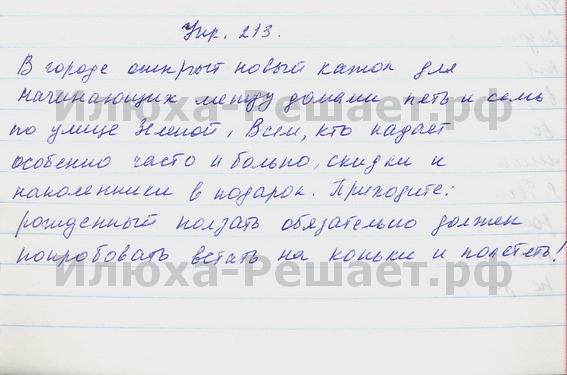 Упр. 213.
В городе открыт новый каток для
начинающих между домами петь и семь
по улице Зеленой, Всем, кто падает
особенно часто и больно, скидки и
наколенники в подарок. Приходите:
рожденный ползать обязательно должен
попробовать встать на коньки и полететь!
Илюха-Решает.рф
Илюха-Решает.рф
Илюха-Решает.рф